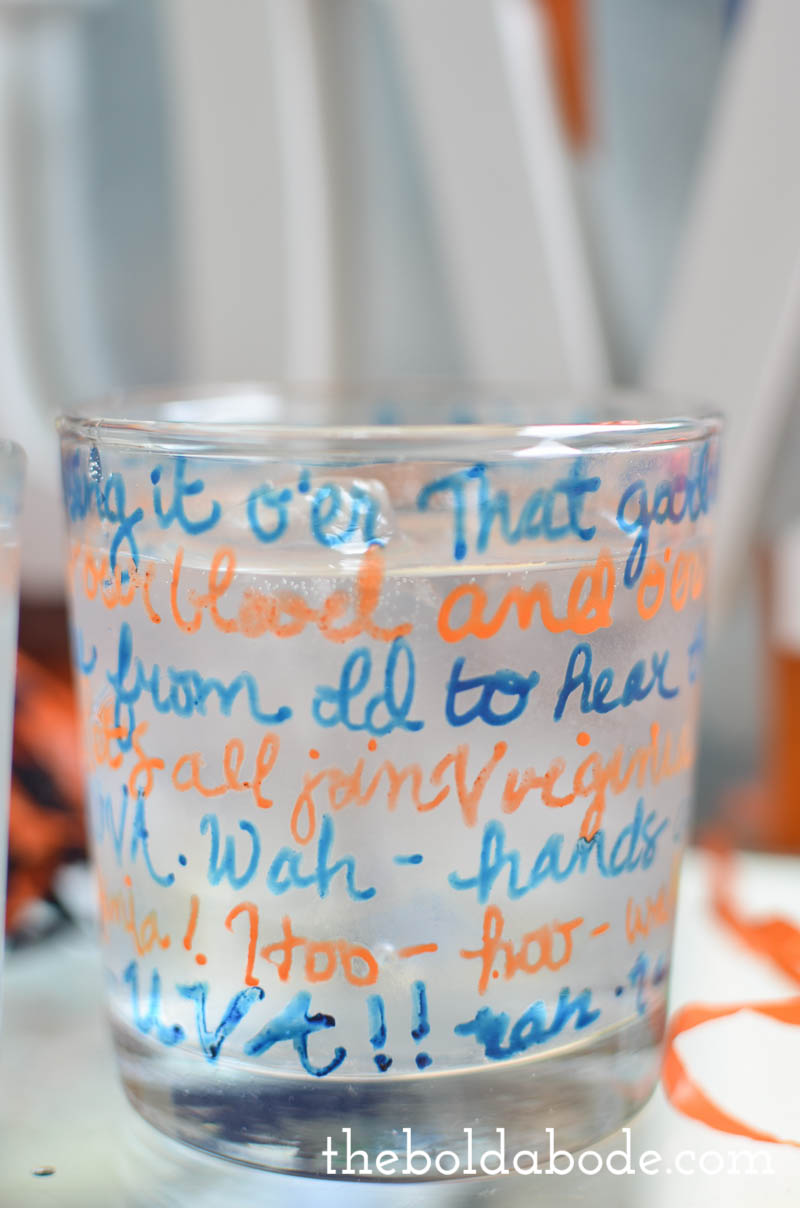 sing it o'er That good
our blood and o'er
from old to hear
all join Virginia
UVA. Wah - hands -
! Hoo - hoo - wa
U.V.A!! rah. ra
theboldabode.com